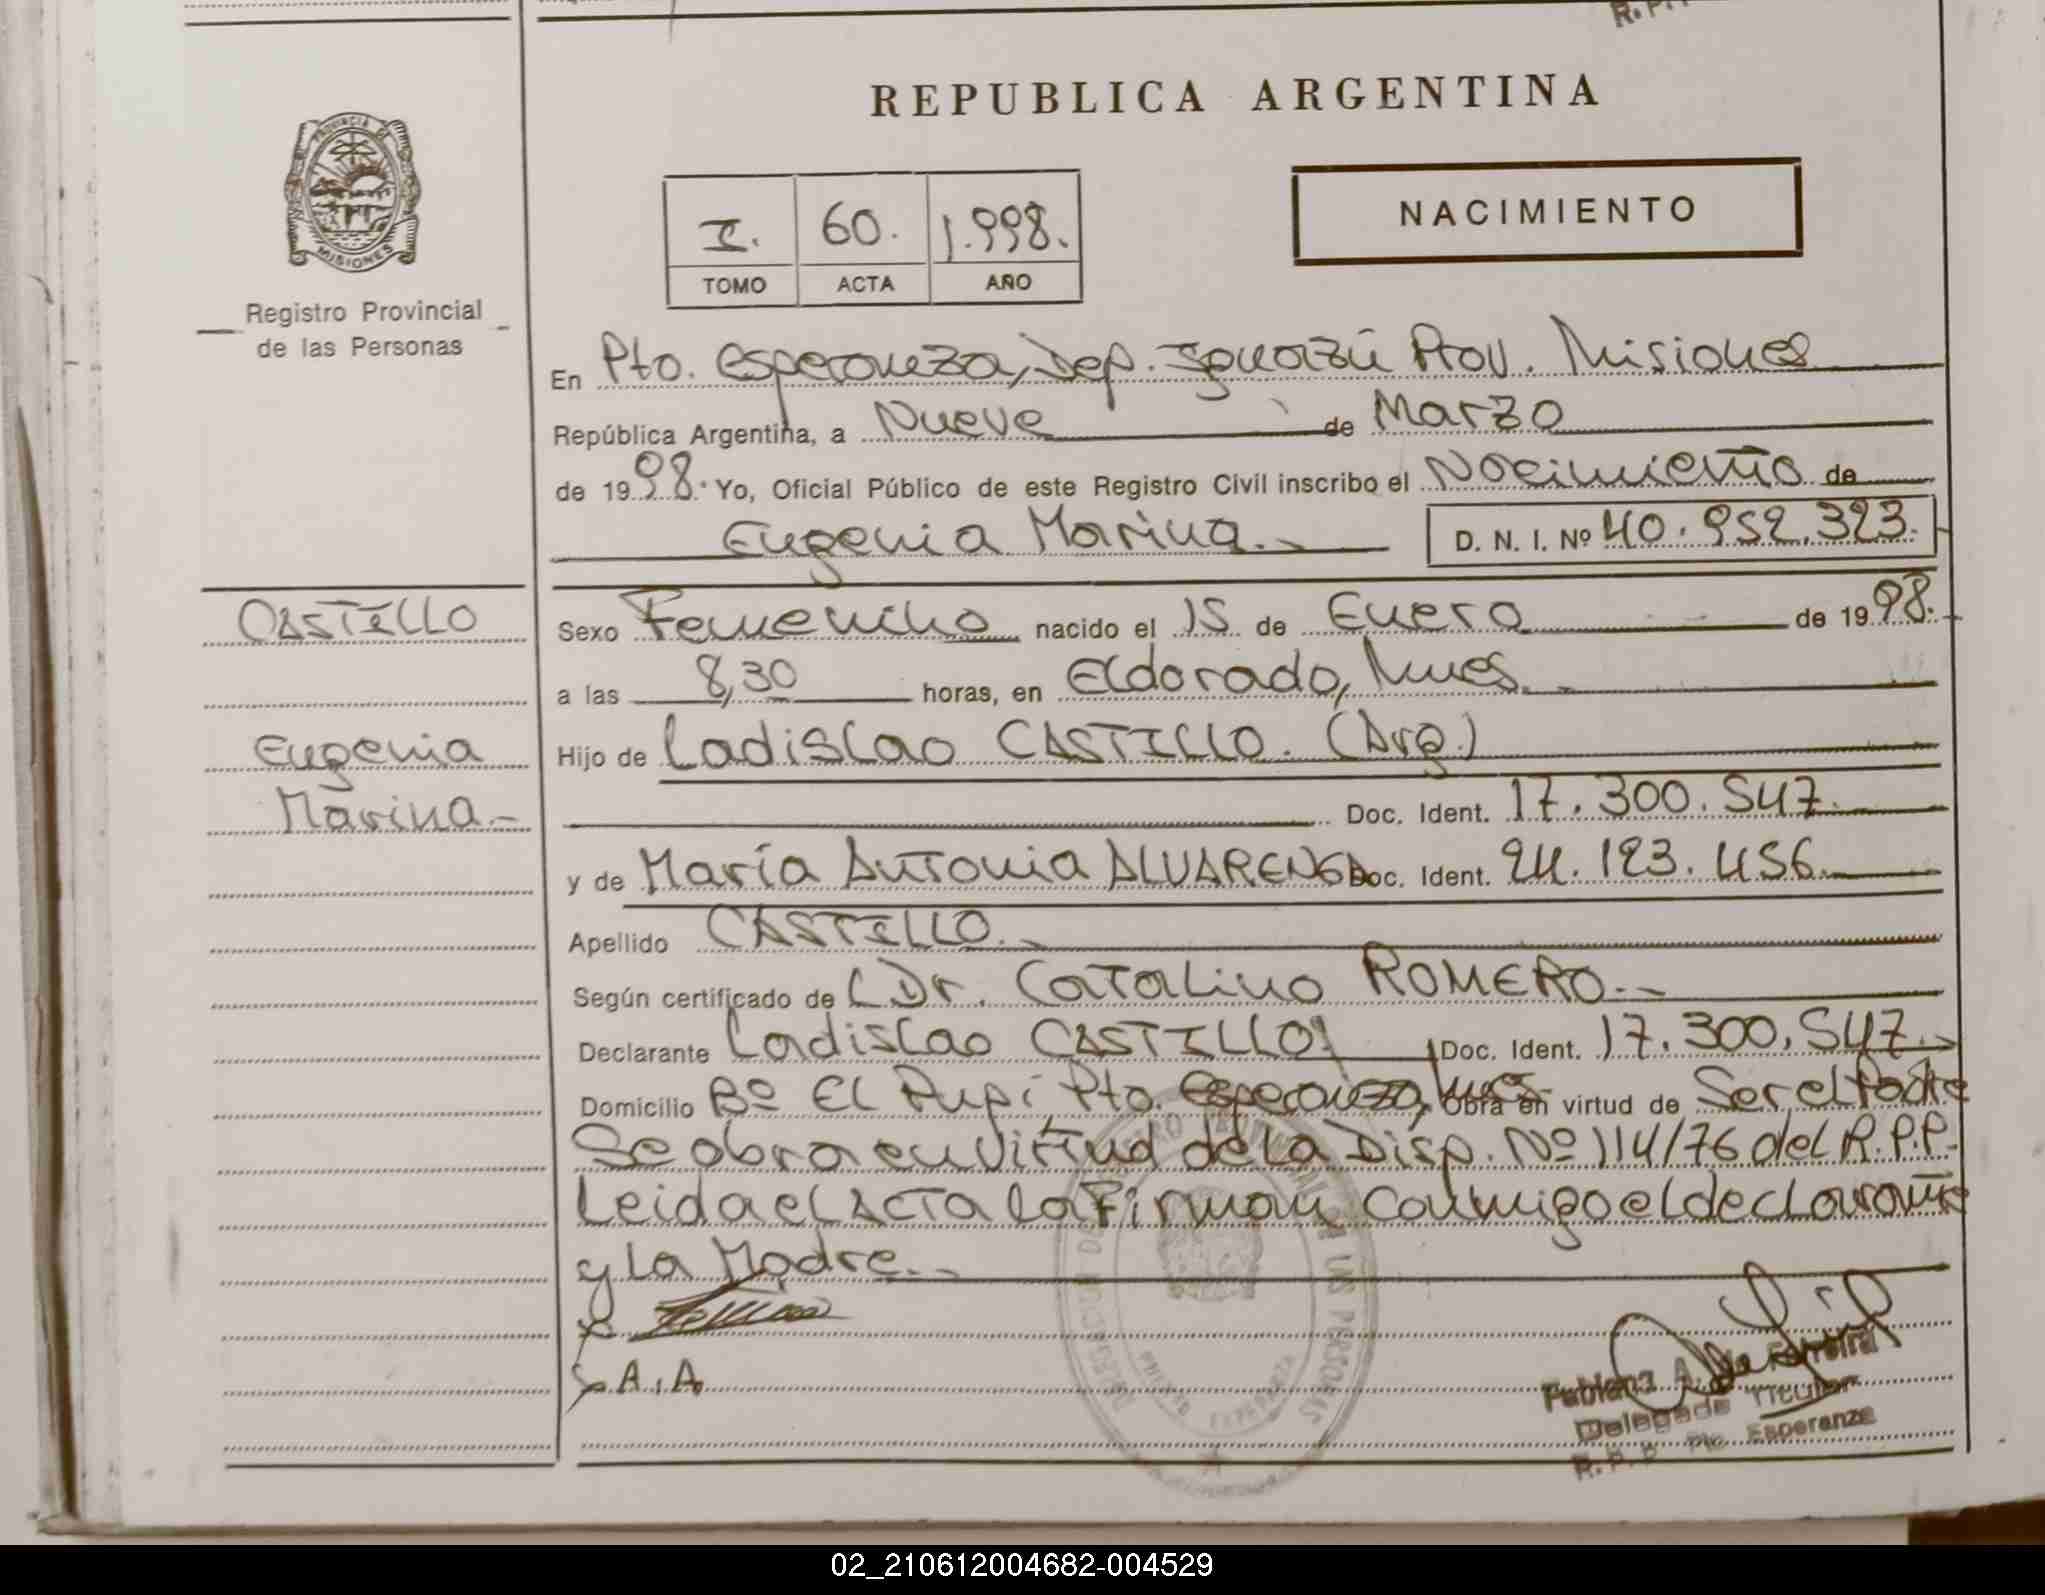 R.P.
REPUBLICA ARGENTINA
PROVINCIA DE
MISIONES
Registro Provincial
de las Personas
I. 60. 1.998.
TOMO ACTA AÑO
NACIMIENTO
En Pto. Esperanza, Dep. Iguazú Prov. Misiones
República Argentina, a Nueve de Marzo
de 1998. Yo, Oficial Público de este Registro Civil inscribo el Nacimiento de
Eugenia Marina.- D. N. I. Nº 40.952.323.
CASTILLO
Sexo Femenino nacido el 15 de Enero de 1998.
a las 8,30 horas, en Eldorado, Mnes.-
Eugenia
Marina.-
Hijo de Ladislao CASTILLO. (Arg.)
Doc. Ident. 17.300.547.
y de María Antonia ALVARENGA Doc. Ident. 24.123.456.
Apellido CASTILLO.-
Según certificado de Dr. Catalino ROMERO.-
Declarante Ladislao CASTILLO Doc. Ident. 17.300.547.-
Domicilio Bº El Pupi, Pto. Esperanza, Mnes. Obra en virtud de Ser el Padre
Se obra en virtud de la Disp. Nº 114/76 del R.P.P.
Leida el Acta la Firman conmigo el declarante
y La Madre.-
A.A
DE LAS PERSONAS
PUERTO ESPERANZA
Fabiana A. Ferreira
Delegada Titular
R.P.P. Pto. Esperanza
02_210612004682-004529